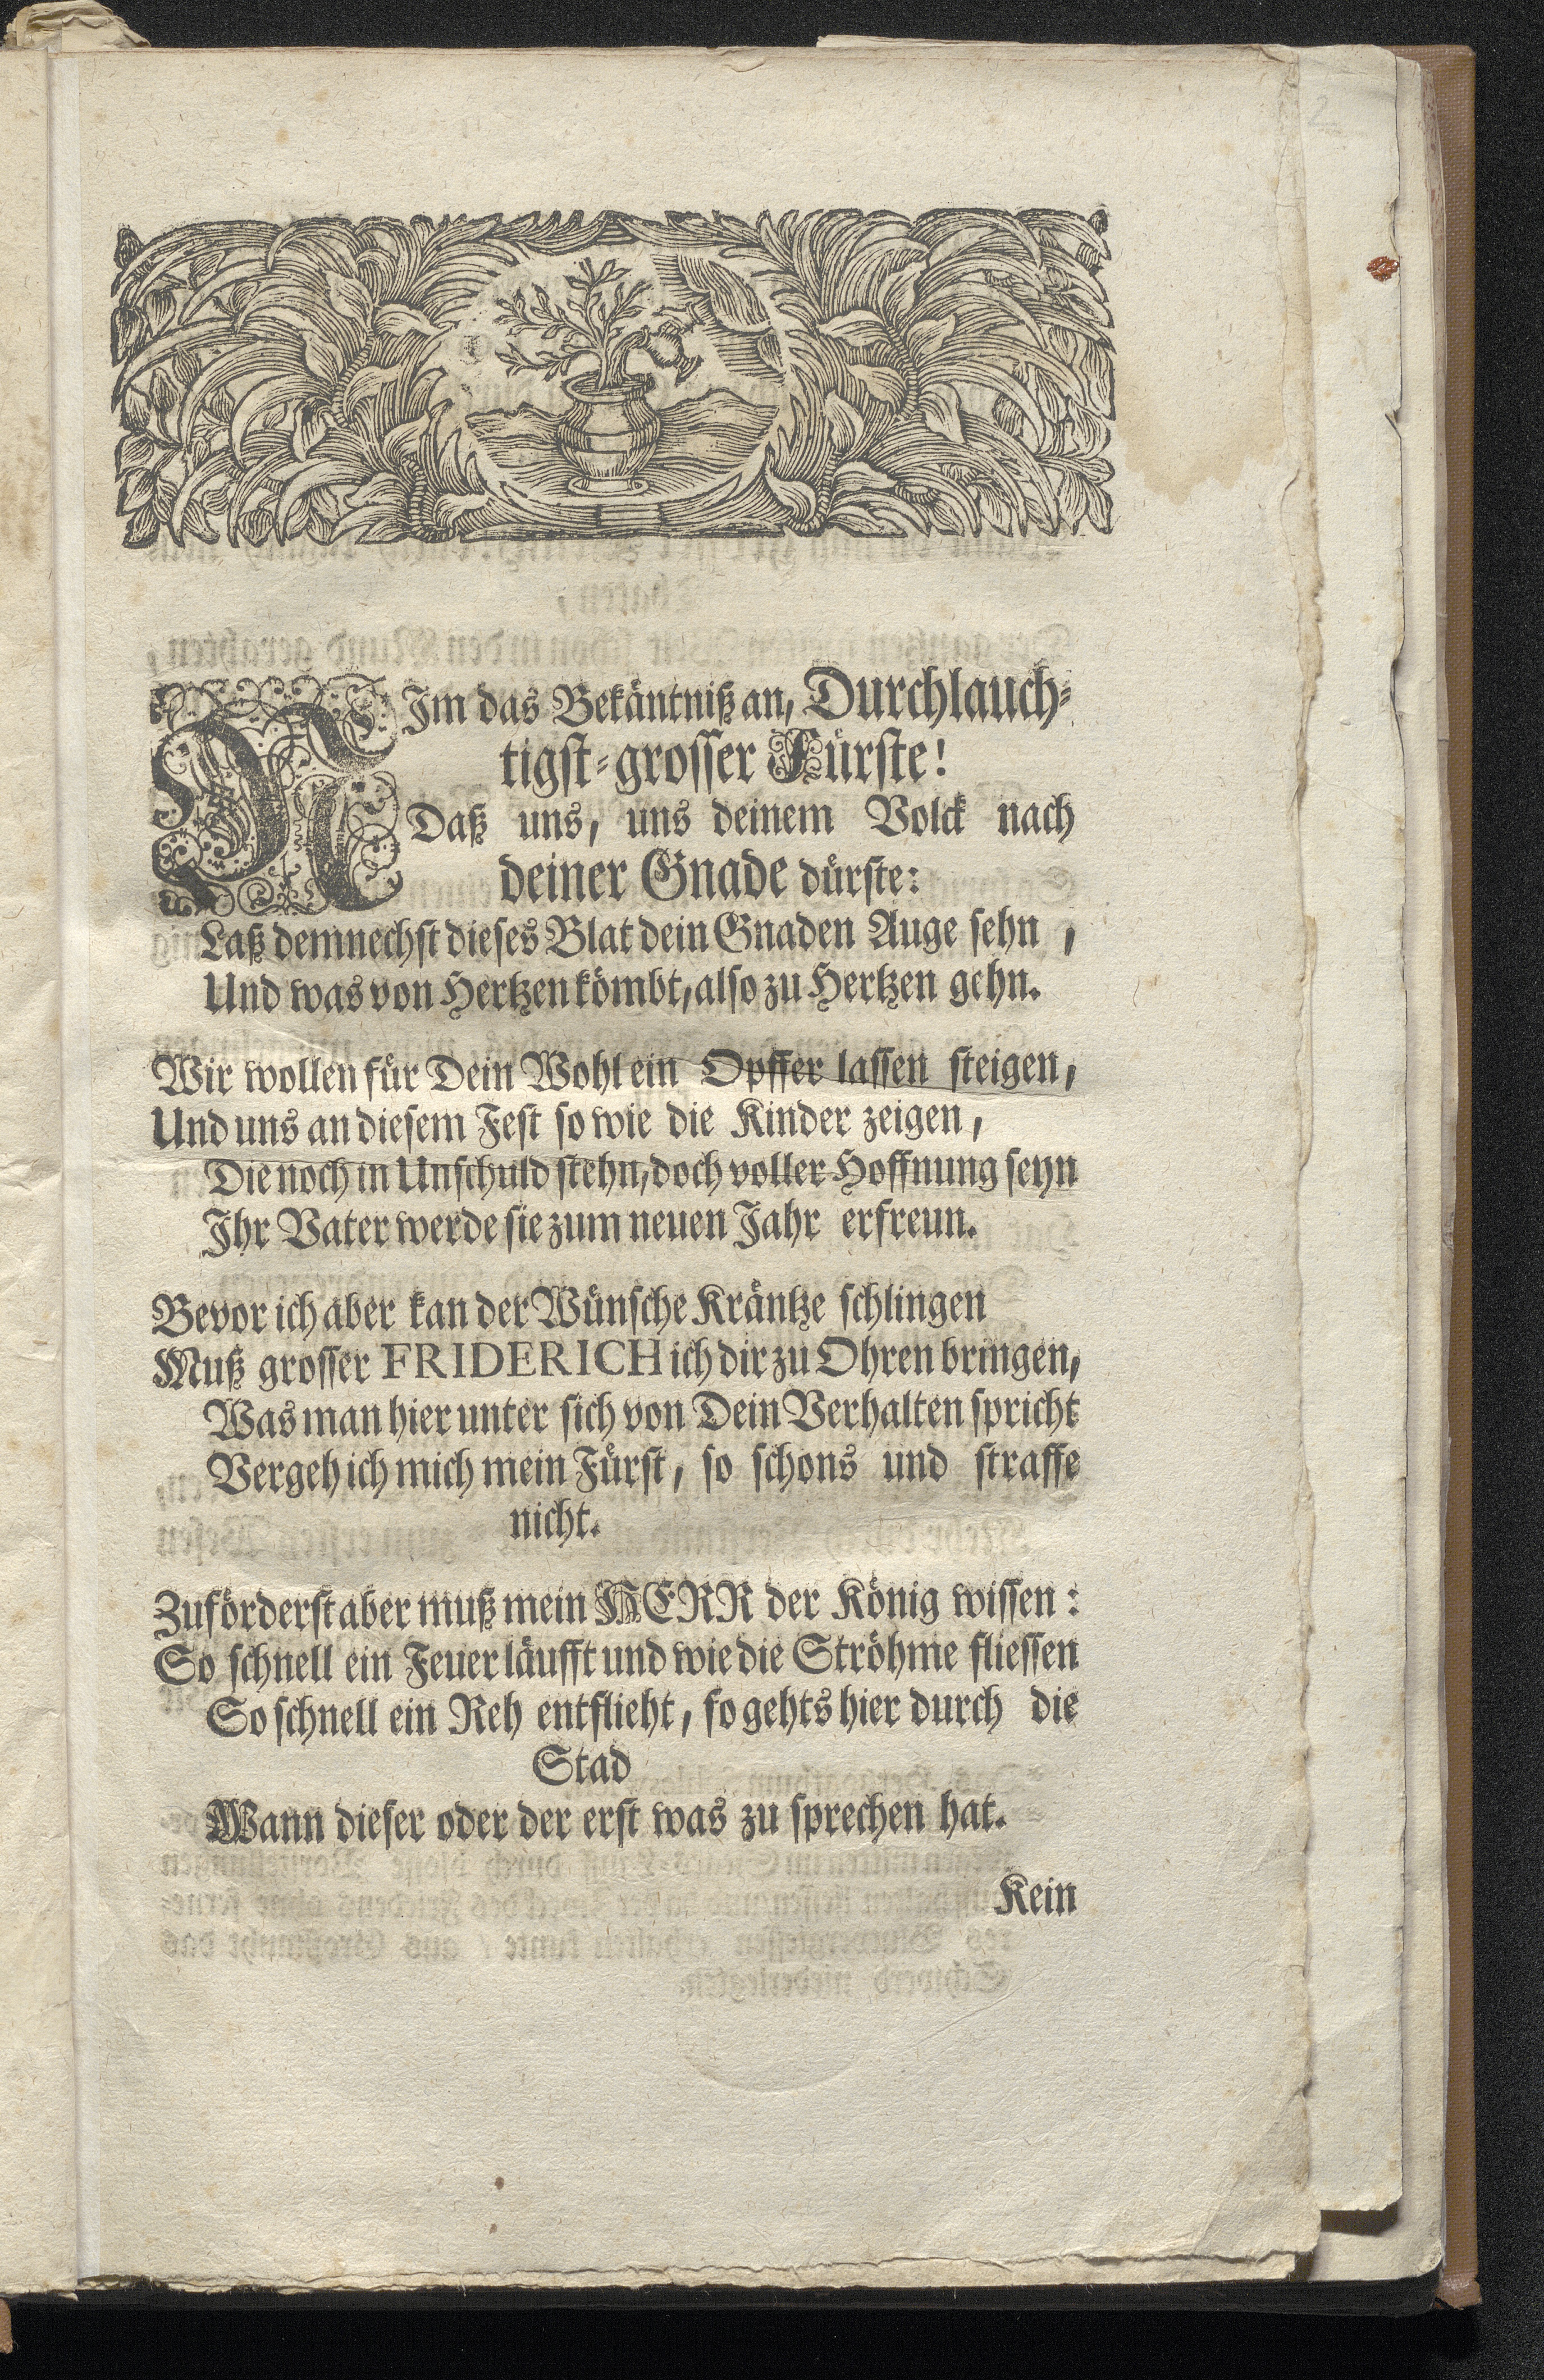 2
NIm das Bekäntniß an, Durchlauch-
tigst-grosser Fürste!
Daß uns, uns deinem Volck nach
deiner Gnade dürste:
Laß demnechst dieses Blat dein Gnaden Auge sehn,
Und was von Hertzen kömbt, also zu Hertzen gehn.
Wir wollen für Dein Wohl ein Opffer lassen steigen,
Und uns an diesem Fest so wie die Kinder zeigen,
Die noch in Unschuld stehn, doch voller Hoffnung seyn
Ihr Vater werde sie zum neuen Jahr erfreun.
Bevor ich aber kan der Wünsche Kräntze schlingen
Muß grosser FRIDERICH ich dir zu Ohren bringen,
Was man hier unter sich von Dein Verhalten spricht
Vergeh ich mich mein Fürst, so schons und straffe
nicht.
Zuförderst aber muß mein HERR der König wissen:
So schnell ein Feuer läufft und wie die Ströhme fliessen
So schnell ein Reh entflieht, so gehts hier durch die
Stad
Wann dieser oder der erst was zu sprechen hat.
Kein